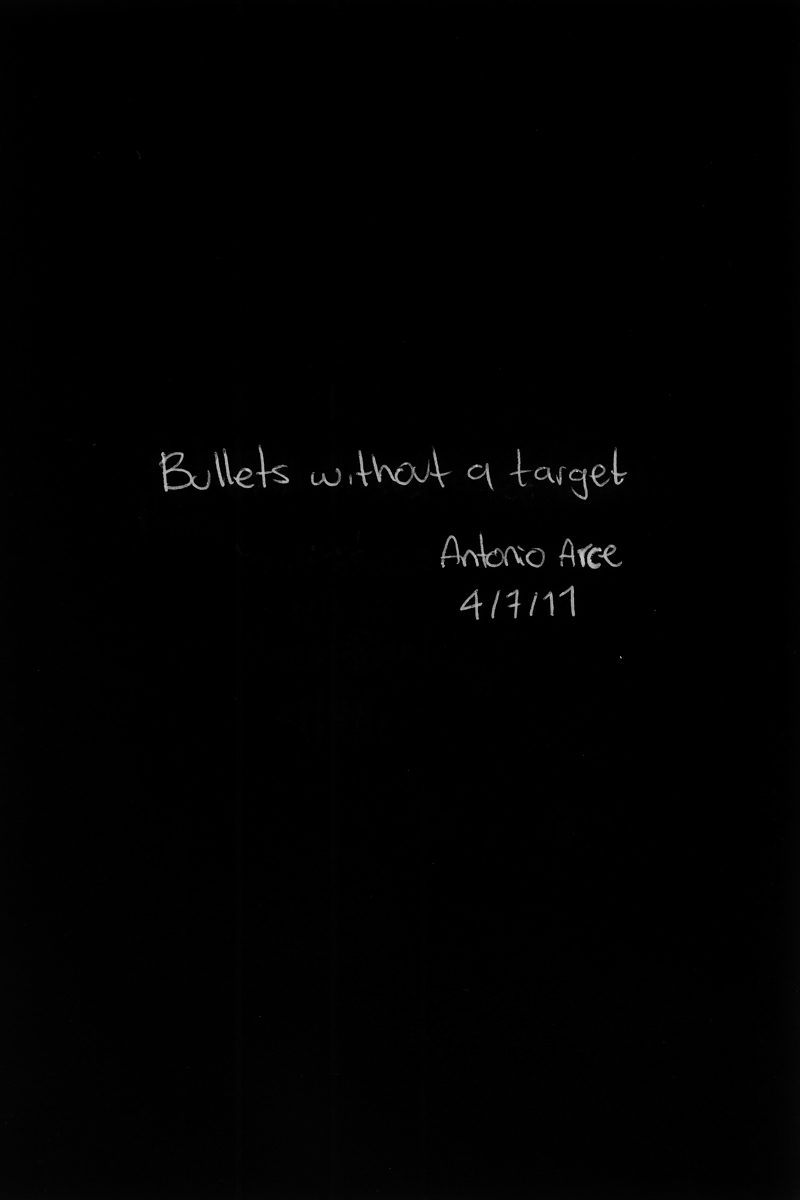 Bullets without a target
Antonio Arce
4/7/11